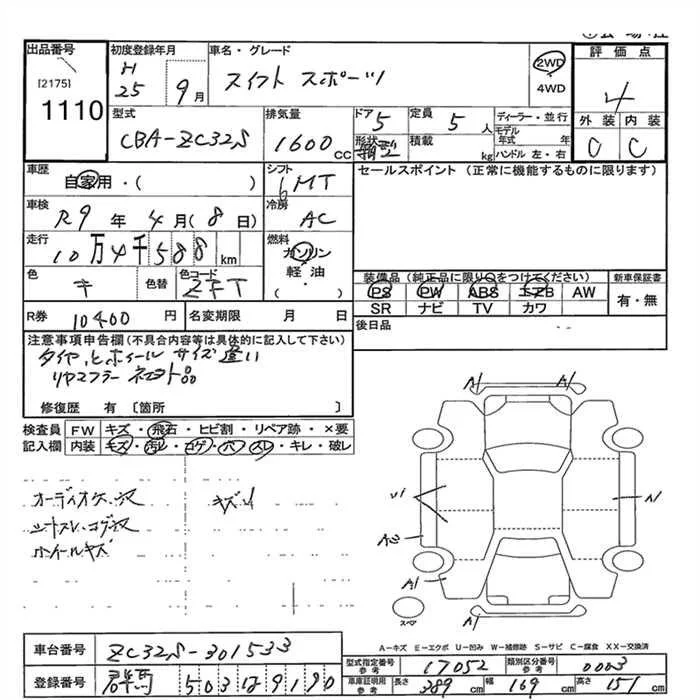 出品番号
[2175]
1110
初度登録年月
H 25 9月
車名・グレード
スイフト スポーツ
2WD
4WD
評価点
4
外装 内装
C C
型式
CBA-ZC32S
排気量
1600 CC
ドア 5
形状 箱型
定員 5 人
積載 kg
ディーラー・並行
モデル年式 年
ハンドル 左・右
車歴
自家用・( )
シフト
6MT
車検
R9年 4月(8日)
冷房
AC
走行
10万4千588km
燃料
ガソリン
軽油・
( )
色
キ
色替
色コード
ZFT
R券 10400円
名変期限 月 日
セールスポイント (正常に機能するものに限ります)
装備品(純正品に限り○をつけてください)
新車保証書
PS PW ABS エアB AW
有・無
SR ナビ TV カワ
後日品
注意事項申告欄(不具合内容等は具体的に記入して下さい)
タイヤ、ホイール サイズ違い
リヤマフラー 社外品
修復歴 有 〔箇所 〕
検査員 FW キズ・飛石・ヒビ割・リペア跡・×要
記入欄 内装 キズ・汚レ・コゲ・穴・スレ・キレ・破レ
オーディオケース穴
シートスレ、コゲ穴
ホイールキズ
キズ
A1 A1
A1
A1
A1
スペア
A-キズ E-エクボ U-凹み W-補修跡 S-サビ C-腐食 XX-交換済
車台番号 ZC32S-301533
登録番号 群馬 503
9190
型式指定番号 参考 17052
類別区分番号 参考 0003
車庫証明用 参考 長さ 389cm 幅 169cm 高さ 151cm